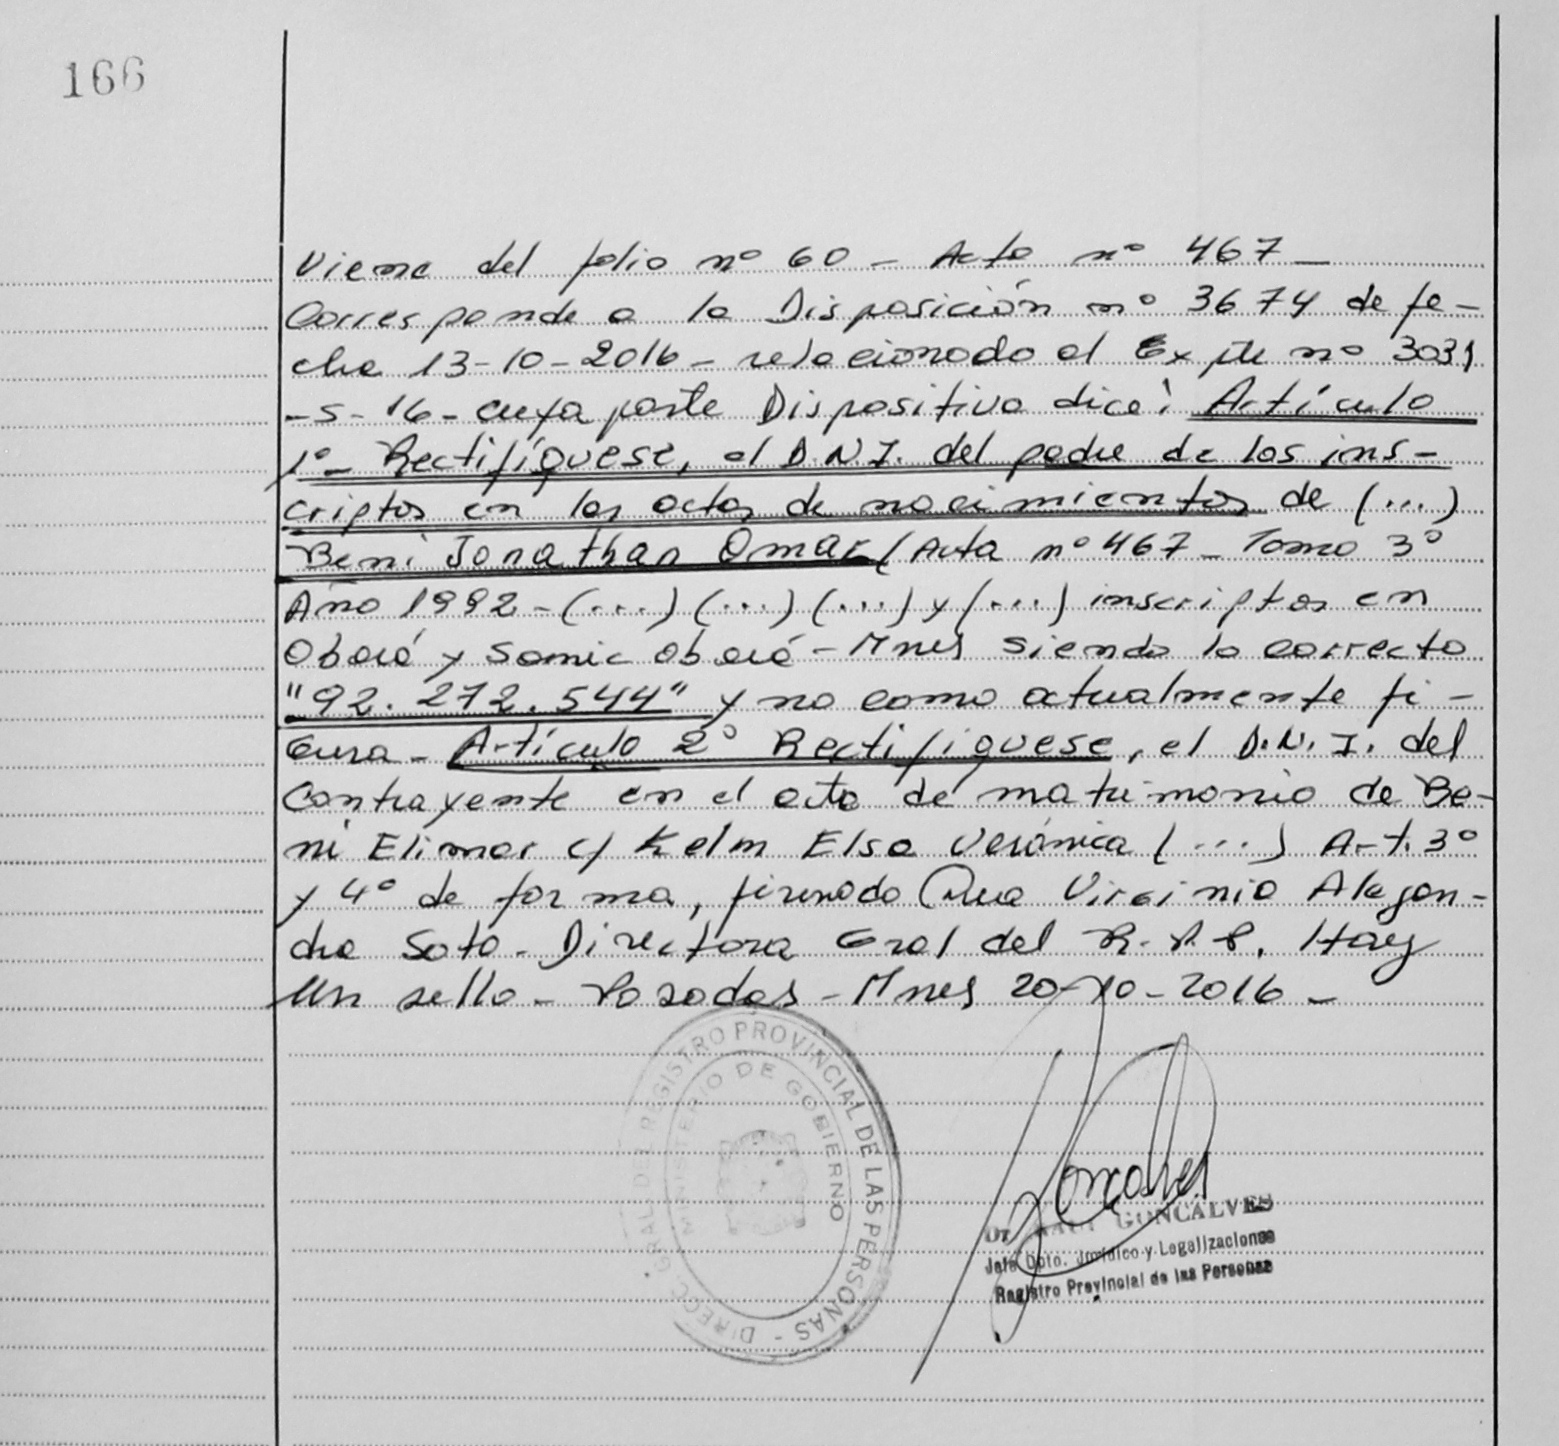 166
Viene del folio nº 60 - Acta nº 467 -
Corresponde a la Disposición nº 3674 de fe-
cha 13-10-2016 - relacionado al Expte nº 3031
-S-16- cuya parte Dispositiva dice: Artículo
1º- Rectifíquese, el D.N.I. del padre de los ins-
criptos en las actas de nacimientos de (...)
Beni Jonathan Omar (Acta nº 467 - Tomo 3º
Año 1992 - (...) (...) (...) y (...) inscriptos en
Oberá y Samic Oberá - Mnes siendo lo correcto
"92.272.544" y no como actualmente fi-
Gura - Artículo 2º Rectifíquese, el D.N.I. del
Contrayente en el acta de matrimonio de Be-
ni Elimar c/ Kelm Elsa Verónica (...) Art. 3º
y 4º de forma, firmado Virginia
Soto - Directora Gral del R.P.P. Hay
Un sello - Posadas - Mnes 20-10-2016 -
DIRECC. GRAL. DEL REGISTRO PROVINCIAL DE LAS PERSONAS -
MINISTERIO DE GOBIERNO
Dr. GONCALVES
Jefe Dpto. Jurídico y Legalizaciones
Registro Provincial de las Personas